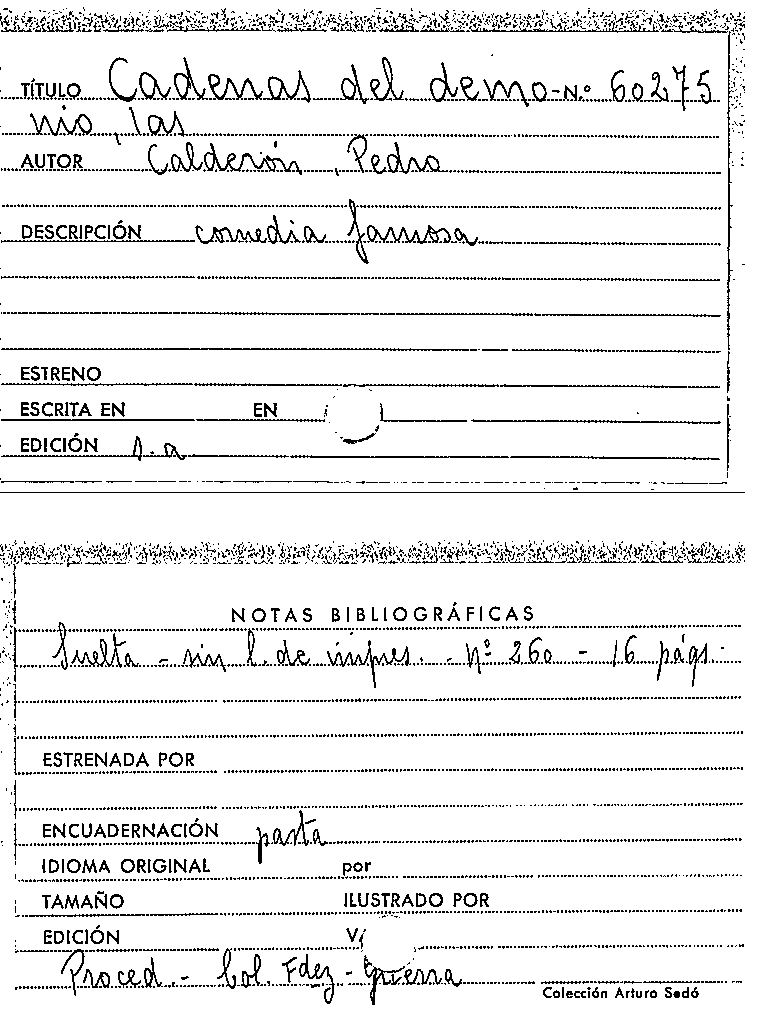 TÍTULO Cadenas del demo- N.º 60275
nio, las
AUTOR Calderón, Pedro
DESCRIPCIÓN comedia famosa
ESTRENO
ESCRITA EN EN
EDICIÓN s.a
NOTAS BIBLIOGRÁFICAS
Suelta - sin l. de impres. - Nº 260 - 16 págs.
ESTRENADA POR
ENCUADERNACIÓN pasta
IDIOMA ORIGINAL por
TAMAÑO ILUSTRADO POR
EDICIÓN
Proced.- Col. Fdez-Guerra
Colección Arturo Sedó